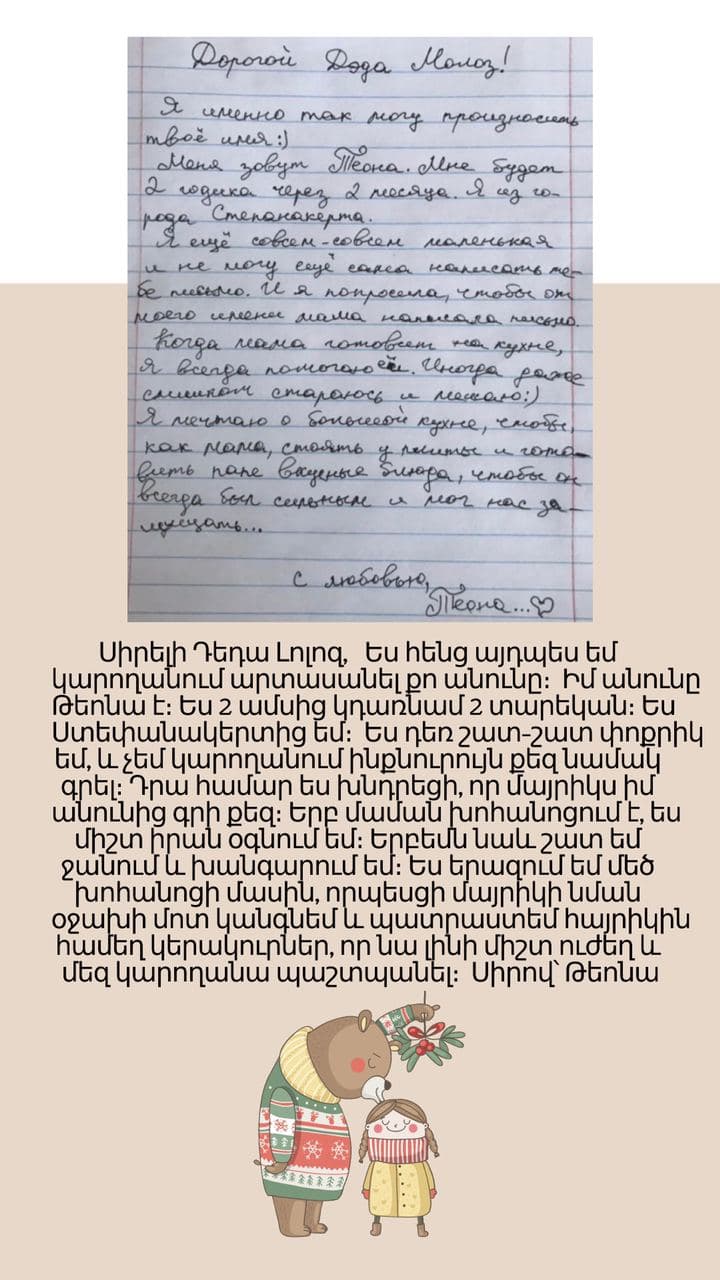 Дорогой Дэда Молоз!
Я именно так могу произносить
твоё имя:)
Меня зовут Теона. Мне будет
2 годика через 2 месяца. Я из го-
рода Степанакерта.
Я ещё совсем-совсем маленькая
и не могу ещё сама написать те-
бе письмо. И я попросила, чтобы от
моего имени мама написала письмо.
Когда мама готовит на кухне,
Я всегда помогаю ей. Иногда даже
слишком стараюсь и мешаю:)
Я мечтаю о большой кухне, чтобы,
как мама, стоять у плиты и гото-
вить папе вкусные блюда, чтобы он
всегда был сильным и мог нас за-
щищать...
С любовью,
Теона...♡
Սիրելի Դեդա Լոլոզ, Ես հենց այդպես եմ
կարողանում արտասանել քո անունը։ Իմ անունը
Թեոնա է։ Ես 2 ամսից կդառնամ 2 տարեկան։ Ես
Ստեփանակերտից եմ։ Ես դեռ շատ-շատ փոքրիկ
եմ, և չեմ կարողանում ինքնուրույն քեզ նամակ
գրել։ Դրա համար ես խնդրեցի, որ մայրիկս իմ
անունից գրի քեզ։ Երբ մաման խոհանոցում է, ես
միշտ իրան օգնում եմ։ Երբեմն նաև շատ եմ
ջանում և խանգարում եմ։ Ես երազում եմ մեծ
խոհանոցի մասին, որպեսցի մայրիկի նման
օջախի մոտ կանգնեմ և պատրաստեմ հայրիկին
համեղ կերակուրներ, որ նա լինի միշտ ուժեղ և
մեզ կարողանա պաշտպանել։ Սիրով՝ Թեոնա